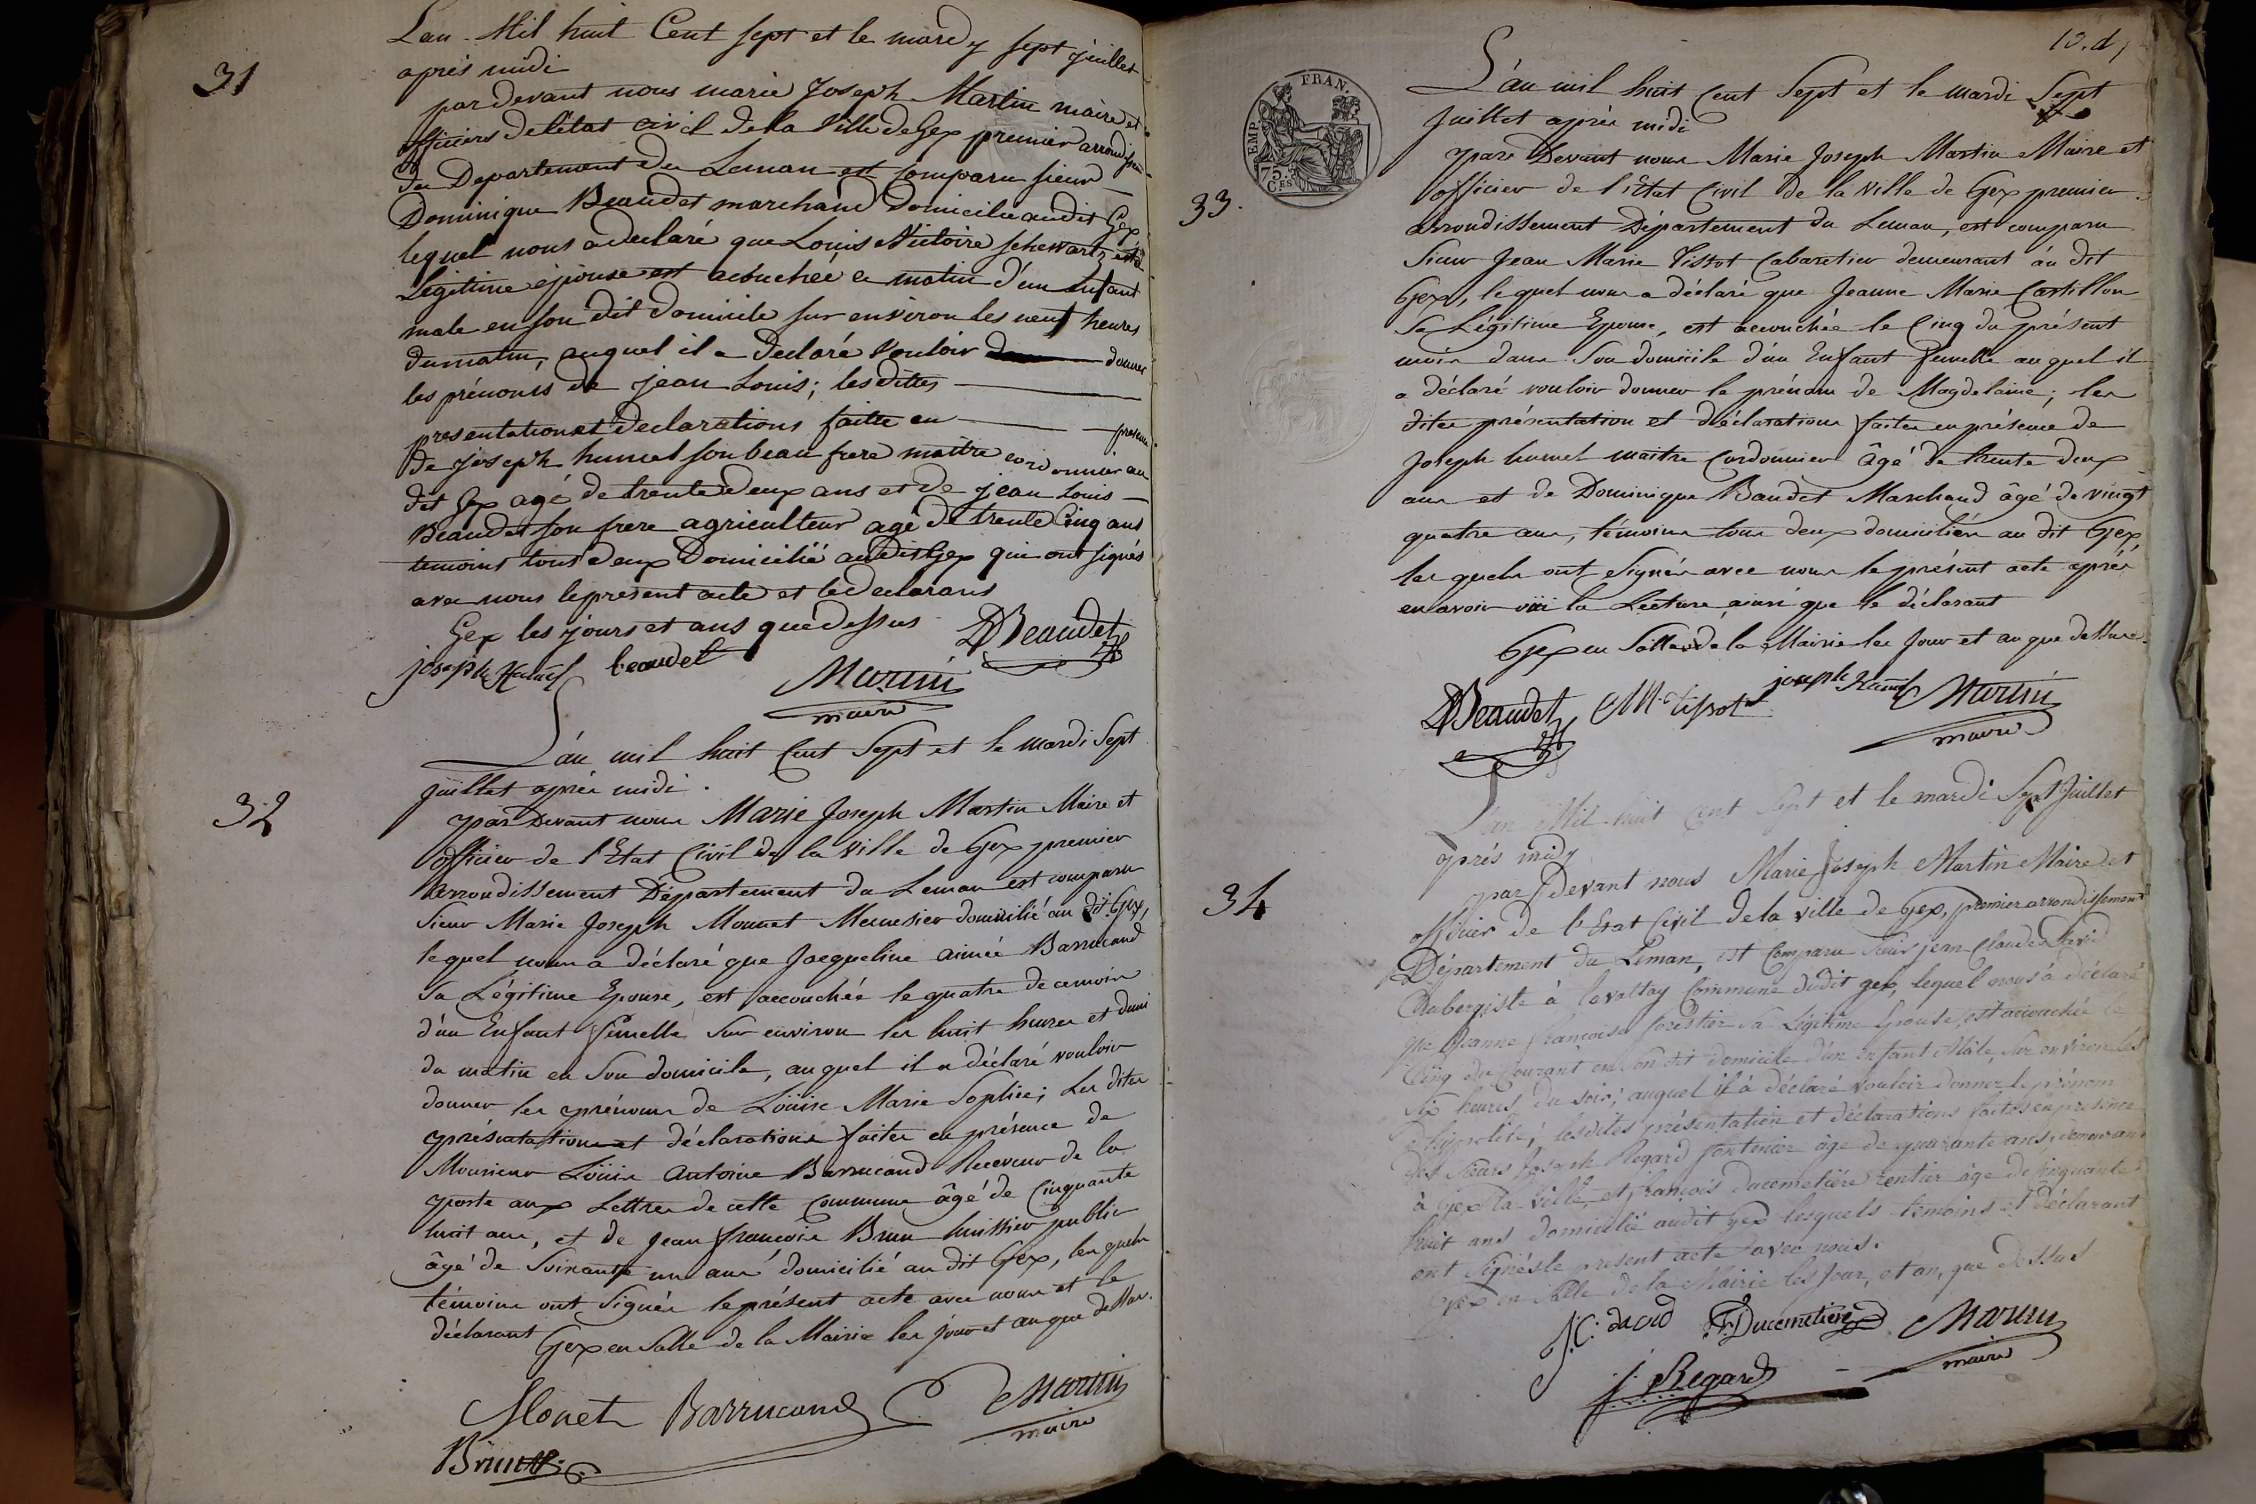 31
Lan Mil huit Cent sept et le mardy sept juillet
après midi
par devant nous marie Joseph Martin maire et
officiers de l'état civil de la Ville de Gex premier arrondissem
du Departement du Leman est comparu sieur
Dominique Beaudet marchand Domicilie audit Gex
lequel nous a declaré que Louis Victoire schewartz
Légitime épouse est acouchée ce matin d'un Enfant
male en son dit Domicile sur environ les neuf heures
du matin, auquel il a Declaré vouloir donner
les prénoms de jean Louis; les dittes
presentation et Declarations faitte en presence
de Joseph humel son beau frere maitre cordonnier au
dit Gex agé de trente deux ans et de jean Louis
Beaudet son frere agriculteur agé de trente Cinq ans
temoins tous deux Domicilié audit Gex qui ont signés
avec nous le present acte et le declarans
Gex les jours et ans que dessus
DBeaudet
joseph Humel beaudet
Martin
maire
32
L'an mil huit Cent Sept et le mardi Sept
juillet après midi.
par Devant nous Marie Joseph Martin Maire et
officier de l'Etat Civil de la Ville de Gex premier
arrondissement Département du Leman est comparu
Sieur Marie Joseph Mounet Menusier domicilié au dit Gex,
lequel nous a déclaré que Jacqueline aimée Barrucand
Sa Légitime Epouse, est accouchée le quatre de ce mois
d'un Enfant femelle Sur environ les huit heures et demi
du matin en Son domicile, auquel il a déclaré vouloir
donner les prénoms de Loüise Marie Sophie; Les dites
présentations et déclarations faites en présence de
Monsieur Loüis Antoine Barrucand Receveur de la
poste aux Lettres de cette Commune âgé de Cinquante
huit ans, et de Jean françois Brun huissier public
âgé de Soixante un ans domicilié au dit Gex, les quels
témoins ont Signés le présent acte avec nous et le
déclarant Gex en Salle de la Mairie les jour et an que dessus.
Monet Barrucand Martin
maire
Brun
10. d,
EMP. FRAN.
75 C.ES
33.
L'an mil huit Cent Sept et le mardi Sept
Juillet après midi
pare Devant nous Marie Joseph Martin Maire et
officier de l'Etat Civil de la Ville de Gex premier
arrondissement Département du Leman, est comparu
Sieur Jean Marie Tissot Cabaretier demeurant au dit
Gex, lequel nous a déclaré que Jeanne Marie Castillon
Sa Légitime Epouse, est accouchée le Cinq du présent
mois dans Son domicile d'un Enfant femelle auquel il
a déclaré vouloir donner le prénom de Magdelaine; les
dites présentation et déclarations faites en présence de
Joseph humel maitre Cordonnier âgé de trente deux
ans et de Dominique Baudet Marchand âgé de vingt
quatre ans, témoins tous deux domiciliés au dit Gex,
les quels ont Signés avec nous le présent acte après
en avoir oüi la Lecture ainsi que le déclarant
Gex en Salle de la Mairie les Jour et an que dessus.
DBeaudet JM. tissot joseph Humel Martin
maire
34
L'an Mil huit Cent Sept et le mardi Sept Juillet
après midy
par Devant nous Marie Joseph Martin Maire et
officier de l'Etat Civil de la ville de Gex, premier arrondissement
Département du Léman, est Comparu Sieur jean Claude David
Aubergiste à lavattay Commune dudit gex, lequel nous a déclaré
que Jeanne françoise forestier Sa Légitime Epouse, est accouchée le
Cinq du Courant en Son dit domicile d'un enfant Mâle, Sur environ les
Six heures du Soir; auquel il a déclaré vouloir donner le prénom
d'hypolite; lesdites présentation et déclarations faites en présence
des Sieurs Joseph Regard fontenier âgé de quarante ans, demeurant
à Gex la Ville, et françois ducemetière rentier âgé de cinquante
huit ans domicilié audit gex lesquels témoins et déclarant
ont Signés le présent acte avec nous.
Gex en Salle de la Mairie les Jour, et an, que dessus
J.C. david F. Ducemetière Martin
maire
J. Regard